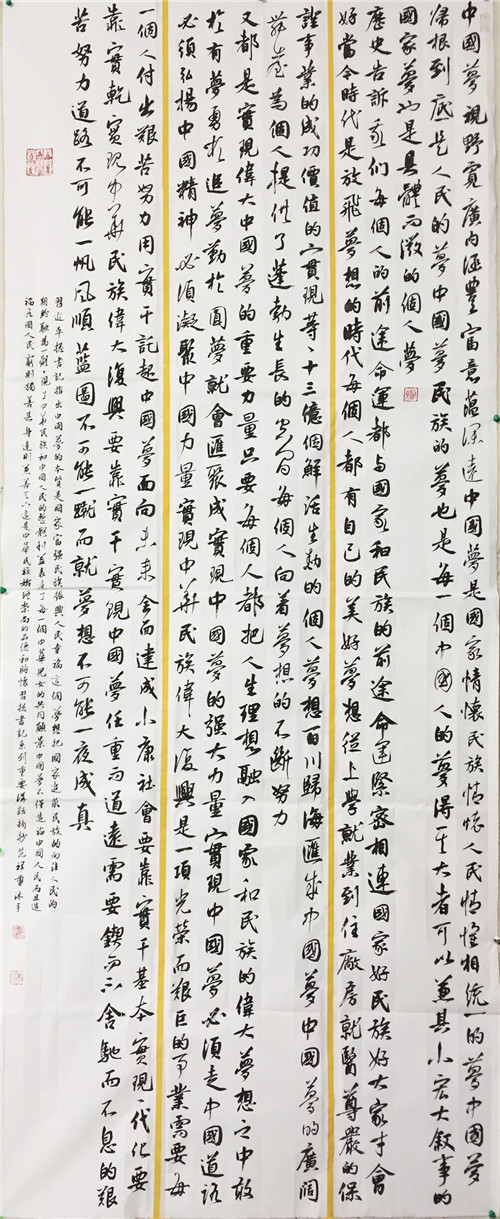 中國夢視野寬廣内涵豐富意蕴深遠中國夢是國家情懷民族情懷人民情懷相統一的夢中國夢
歸根到底是人民的夢中國夢民族的夢也是每一個中國人的夢得其大者可以兼其小宏大敘事的
國家夢也是具體而微的個人夢
歷史告訴我们每個人的前途命運都与國家和民族的前途命運緊密相連國家好民族好大家才會
好當今時代是放飛夢想的時代每個人都有自己的美好夢想從上學就業到住廠房就醫尊嚴的保
證事業的成功價值的實現等等十三億個鮮活生動的個人夢想百川歸海匯成中國夢中國夢的廣闊
舞臺為個人提供了蓬勃生長的空间每個人向着夢想的不斷努力
又都是實現偉大中國夢的重要力量只要每個人都把人生理想融入國家和民族的偉大夢想之中敢
於有夢勇於追夢勤於圓夢就會匯聚成實現中國夢的强大力量實現中國夢必須走中國道路
必須弘揚中國精神必須凝聚中國力量實現中華民族偉大復興是一項光榮而艱巨的事業需要每
一個人付出艱苦努力用實干託起中國夢面向未来全面達成小康社會要靠實干基本實現現代化要
靠實乾實現中華民族偉大復興要靠實干實現中國夢任重而道遠需要鍥而不舍馳而不息的艱
苦努力道路不可能一帆風順藍圖不可能一蹴而就夢想不可能一夜成真
習近平提書記指出中國夢的本質是國家富强民族振興人民幸福這個夢想把國家追求民族的向往人民的
期盼融為一體現了中華民族和中國人民的整體利益表達了每一個中華兒女的共同願景中國夢不僅造福中國人民而且造
福各國人民窮則獨善其身達則兼善天下這是中華民族始終崇尚的品德和胸懷習提書記系列重要講話摘抄